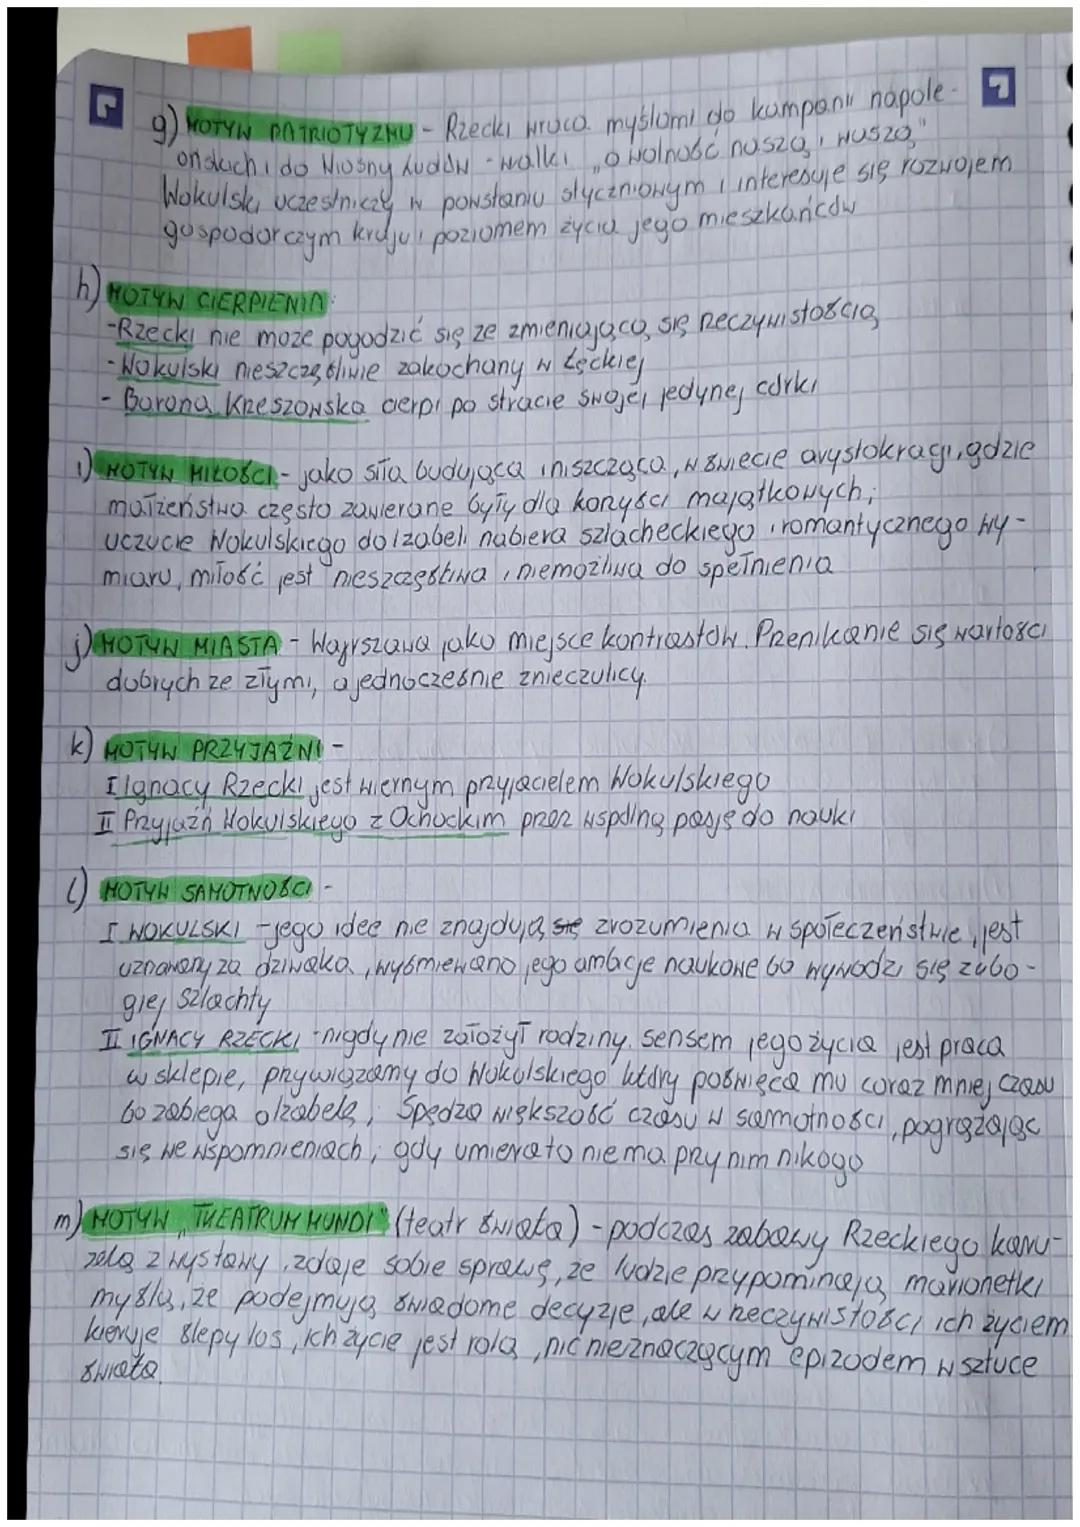 g) MOTYW PATRIOTYZMU - Rzecki wraca myślami do kampanii napole-
ońskich i do Wiosny Ludów - walki „o wolność naszą i waszą"
Wokulski uczestniczy w powstaniu styczniowym i interesuje się rozwojem
gospodarczym kraju i poziomem życia jego mieszkańców
h) MOTYW CIERPIENIA:
-Rzecki nie może pogodzić się ze zmieniającą się rzeczywistością
- Wokulski nieszczęśliwie zakochany w Łęckiej
- Barona Krzeszowska cierpi po stracie swojej jedynej córki
i) MOTYW MIŁOŚCI - jako siła budująca i niszcząca, w świecie arystokracji, gdzie
małżeństwa często zawierane były dla korzyści majątkowych;
uczucie Wokulskiego do Izabeli nabiera szlacheckiego i romantycznego wy-
miaru, miłość jest nieszczęśliwa i niemożliwa do spełnienia
j) MOTYW MIASTA - Warszawa jako miejsce kontrastów. Przenikanie się wartości
dobrych ze złymi, a jednocześnie znieczulicy.
k) MOTYW PRZYJAŹNI -
I Ignacy Rzecki jest wiernym przyjacielem Wokulskiego
II Przyjaźń Wokulskiego z Ochockim przez wspólną pasję do nauki
l) MOTYW SAMOTNOŚCI -
I WOKULSKI - jego idee nie znajdują się zrozumienia w społeczeństwie, jest
uznawany za dziwaka, wyśmiewano jego ambicje naukowe bo wywodzi się z ubo-
giej szlachty
II IGNACY RZECKI - nigdy nie założył rodziny, sensem jego życia jest praca
w sklepie, przywiązany do Wokulskiego który poświęca mu coraz mniej czasu
bo zabiega o Izabelę, Spędza większość czasu w samotności, pogrążając
się we wspomnieniach, gdy umiera to nie ma przy nim nikogo
m) MOTYW „THEATRUM MUNDI" (teatr świata) - podczas zabawy Rzeckiego karu-
zelą z wystawy, zdaje sobie sprawę, że ludzie przypominają marionetki
myślą, że podejmują świadome decyzje, ale w rzeczywistości ich życiem
kieruje ślepy los, ich życie jest rolą, nic nieznaczącym epizodem w sztuce
świata.